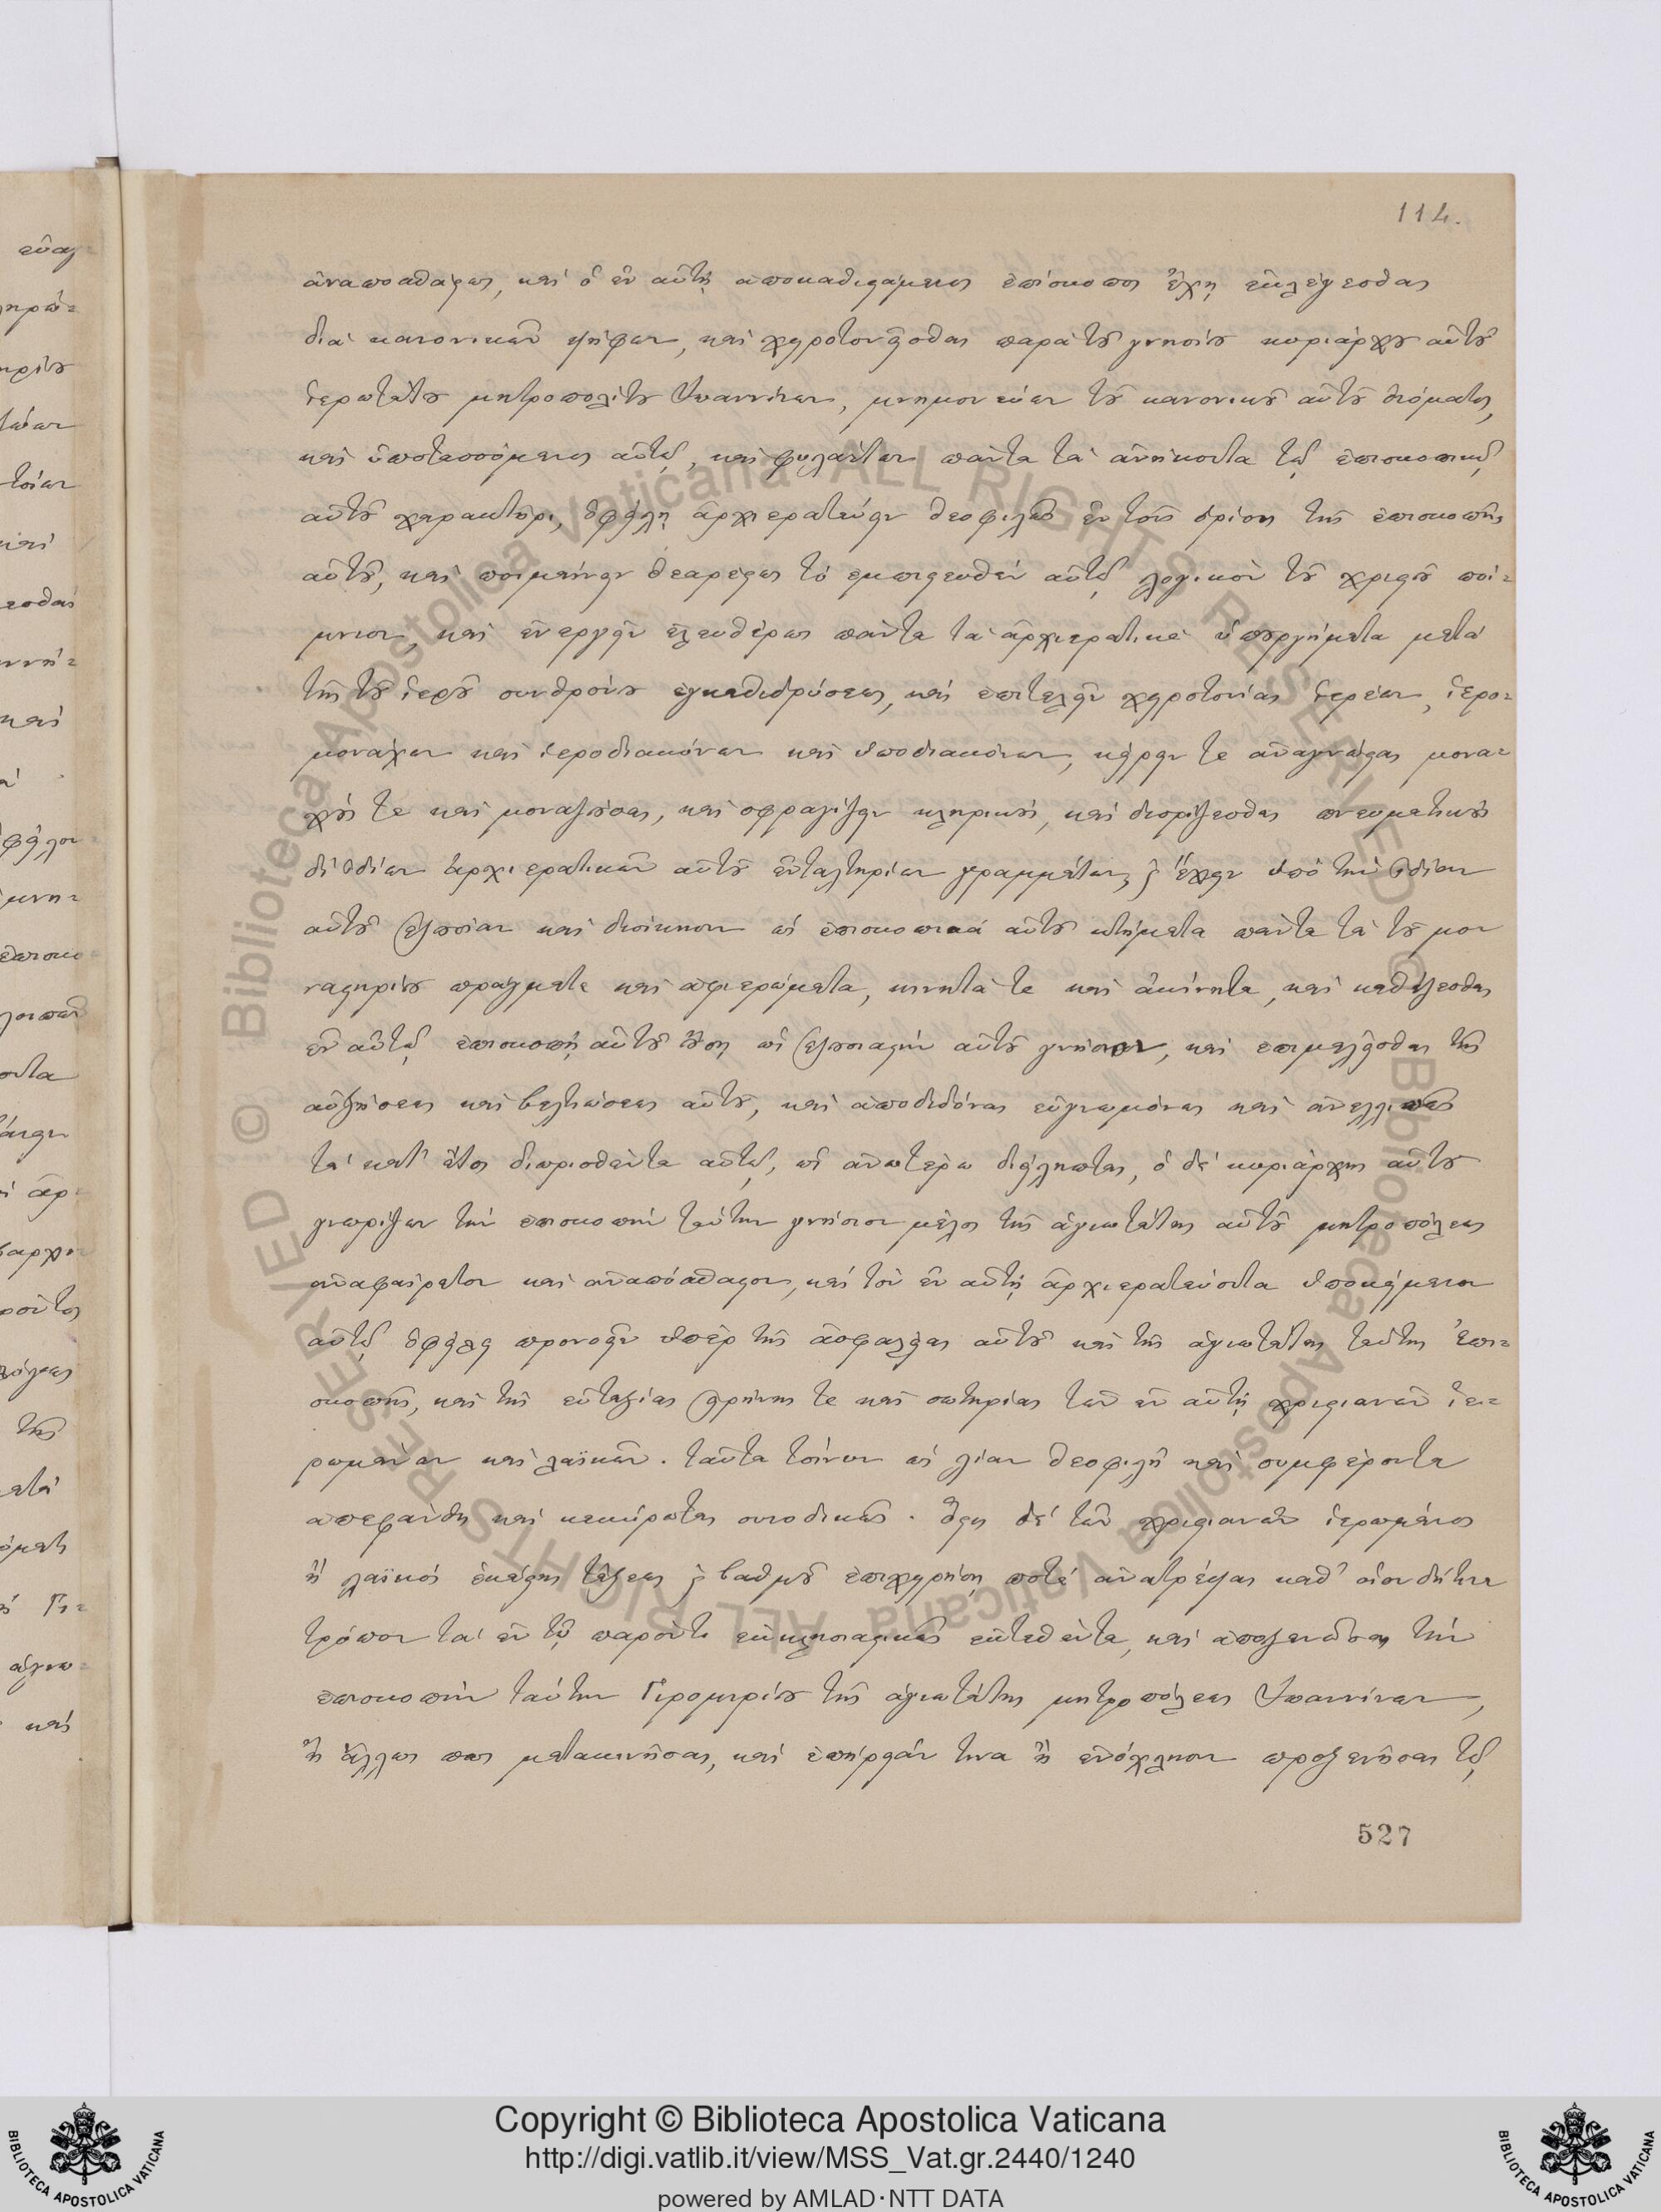 114.
ἀναποσπάστως, καὶ ὁ ἐν αὐτῇ ἀποκαθιστάμενος ἐπίσκοπος ἔχῃ ἐκλέγεσθαι
διὰ κανονικῶν ψήφων, καὶ χειροτονεῖσθαι παρὰ τοῦ γνησίου κυριάρχου αὐτοῦ
ἱερωτάτου μητροπολίτου Ἰωαννίνων, μνημονεύων τοῦ κανονικοῦ αὐτοῦ ὀνόματος,
καὶ ὑποτασσόμενος αὐτῷ, καὶ φυλάττων πάντα τὰ ἀνήκοντα τῷ ἐπισκοπικῷ
αὐτοῦ χαρακτῆρι, ὀφείλῃ ἀρχιερατεύειν θεοφιλῶς ἐν τοῖς ὁρίοις τῆς ἐπισκοπῆς
αὐτοῦ, καὶ ποιμαίνειν θεαρέστως τὸ ἐμπιστευθὲν αὐτῷ λογικὸν τοῦ χριστοῦ ποί-
μνιον, καὶ ἐνεργεῖν ἐλευθέρως πάντα τὰ ἀρχιερατικὰ ὑπουργήματα μετὰ
τῆς τοῦ ἱεροῦ συνθρόνου ἐγκαθιδρύσεως, καὶ ἐπιτελεῖν χειροτονίας ἱερέων, ἱερο-
μονάχων καὶ ἱεροδιακόνων καὶ ὑποδιακόνων, κείρειν τε ἀναγνώστας μονα-
χούς τε καὶ μοναζούσας, καὶ σφραγίζειν κληρικούς, καὶ διορίζεσθαι πνευματικοὺς
δι' ἰδίων ἀρχιερατικῶν αὐτοῦ ἐνταλτηρίων γραμμάτων, ϗ ἔχειν ὑπὸ τὴν ἰδίαν
αὐτοῦ ἐξουσίαν καὶ διοίκησιν ὡς ἐπισκοπικὰ αὐτοῦ κτήματα πάντα τὰ τοῦ μον
ναστηρίου πράγματα καὶ ἀφιερώματα, κινητά τε καὶ ἀκίνητα, καὶ καθέζεσθαι
ἐν αὐτῷ ἐπισκοπῇ αὐτοῦ οὔσῃ ὡς ἐξουσιαστὴν αὐτοῦ γνήσιον, καὶ ἐπιμελεῖσθαι τῆς
αὐξήσεως καὶ βελτιώσεως αὐτοῦ, καὶ ἀποδιδόναι εὐγνωμόνως καὶ ἀνελλιπῶς
τὰ κατ' ἔτος διορισθέντα αὐτῷ, ὡς ἀνωτέρω διείληπται, ὁ δὲ κυριάρχης αὐτοῦ
γνωρίζων τὴν ἐπισκοπὴν ταύτην γνήσιον μέλος τῆς ἁγιωτάτης αὐτοῦ μητροπόλεως
ἀναφαίρετον καὶ ἀναπόσπαστον, καὶ τὸν ἐν αὐτῇ ἀρχιερατεύοντα ὑποκείμενον
αὐτῷ ὀφείλει προνοεῖν ὑπὲρ τῆς ἀσφαλείας αὐτοῦ καὶ τῆς ἁγιωτάτης ταύτης ἐπι-
σκοπῆς, καὶ τῆς εὐταξίας εἰρήνης τε καὶ σωτηρίας τῶν ἐν αὐτῇ χριστιανῶν ἱε-
ρωμένων καὶ λαϊκῶν. ταῦτα τοίνυν ὡς λίαν θεοφιλῆ καὶ συμφέροντα
ἀπεφάνθη καὶ κεκύρωται συνοδικῶς. ὅστις δὲ τῶν χριστιανῶν ἱερωμένος
ἢ λαϊκὸς ἑκάστης τάξεως ϗ βαθμοῦ ἐπιχειρήσῃ ποτὲ ἀνατρέψαι καθ' οἱονδήτινα
τρόπον τὰ ἐν τῷ παρόντι ἐκκλησιαστικῶς ἐκτεθέντα, καὶ ἀποξενῶσαι τὴν
ἐπισκοπὴν ταύτην Γηρομηρίου τῆς ἁγιωτάτης μητροπόλεως Ἰωαννίνων,
ἢ ἄλλως πως μετακινῆσαι, καὶ ἐπήρειάν τινα ἢ ἐνόχλησιν προξενῆσαι τῷ
527
Copyright © Biblioteca Apostolica Vaticana
http://digi.vatlib.it/view/MSS_Vat.gr.2440/1240
powered by AMLAD·NTT DATA